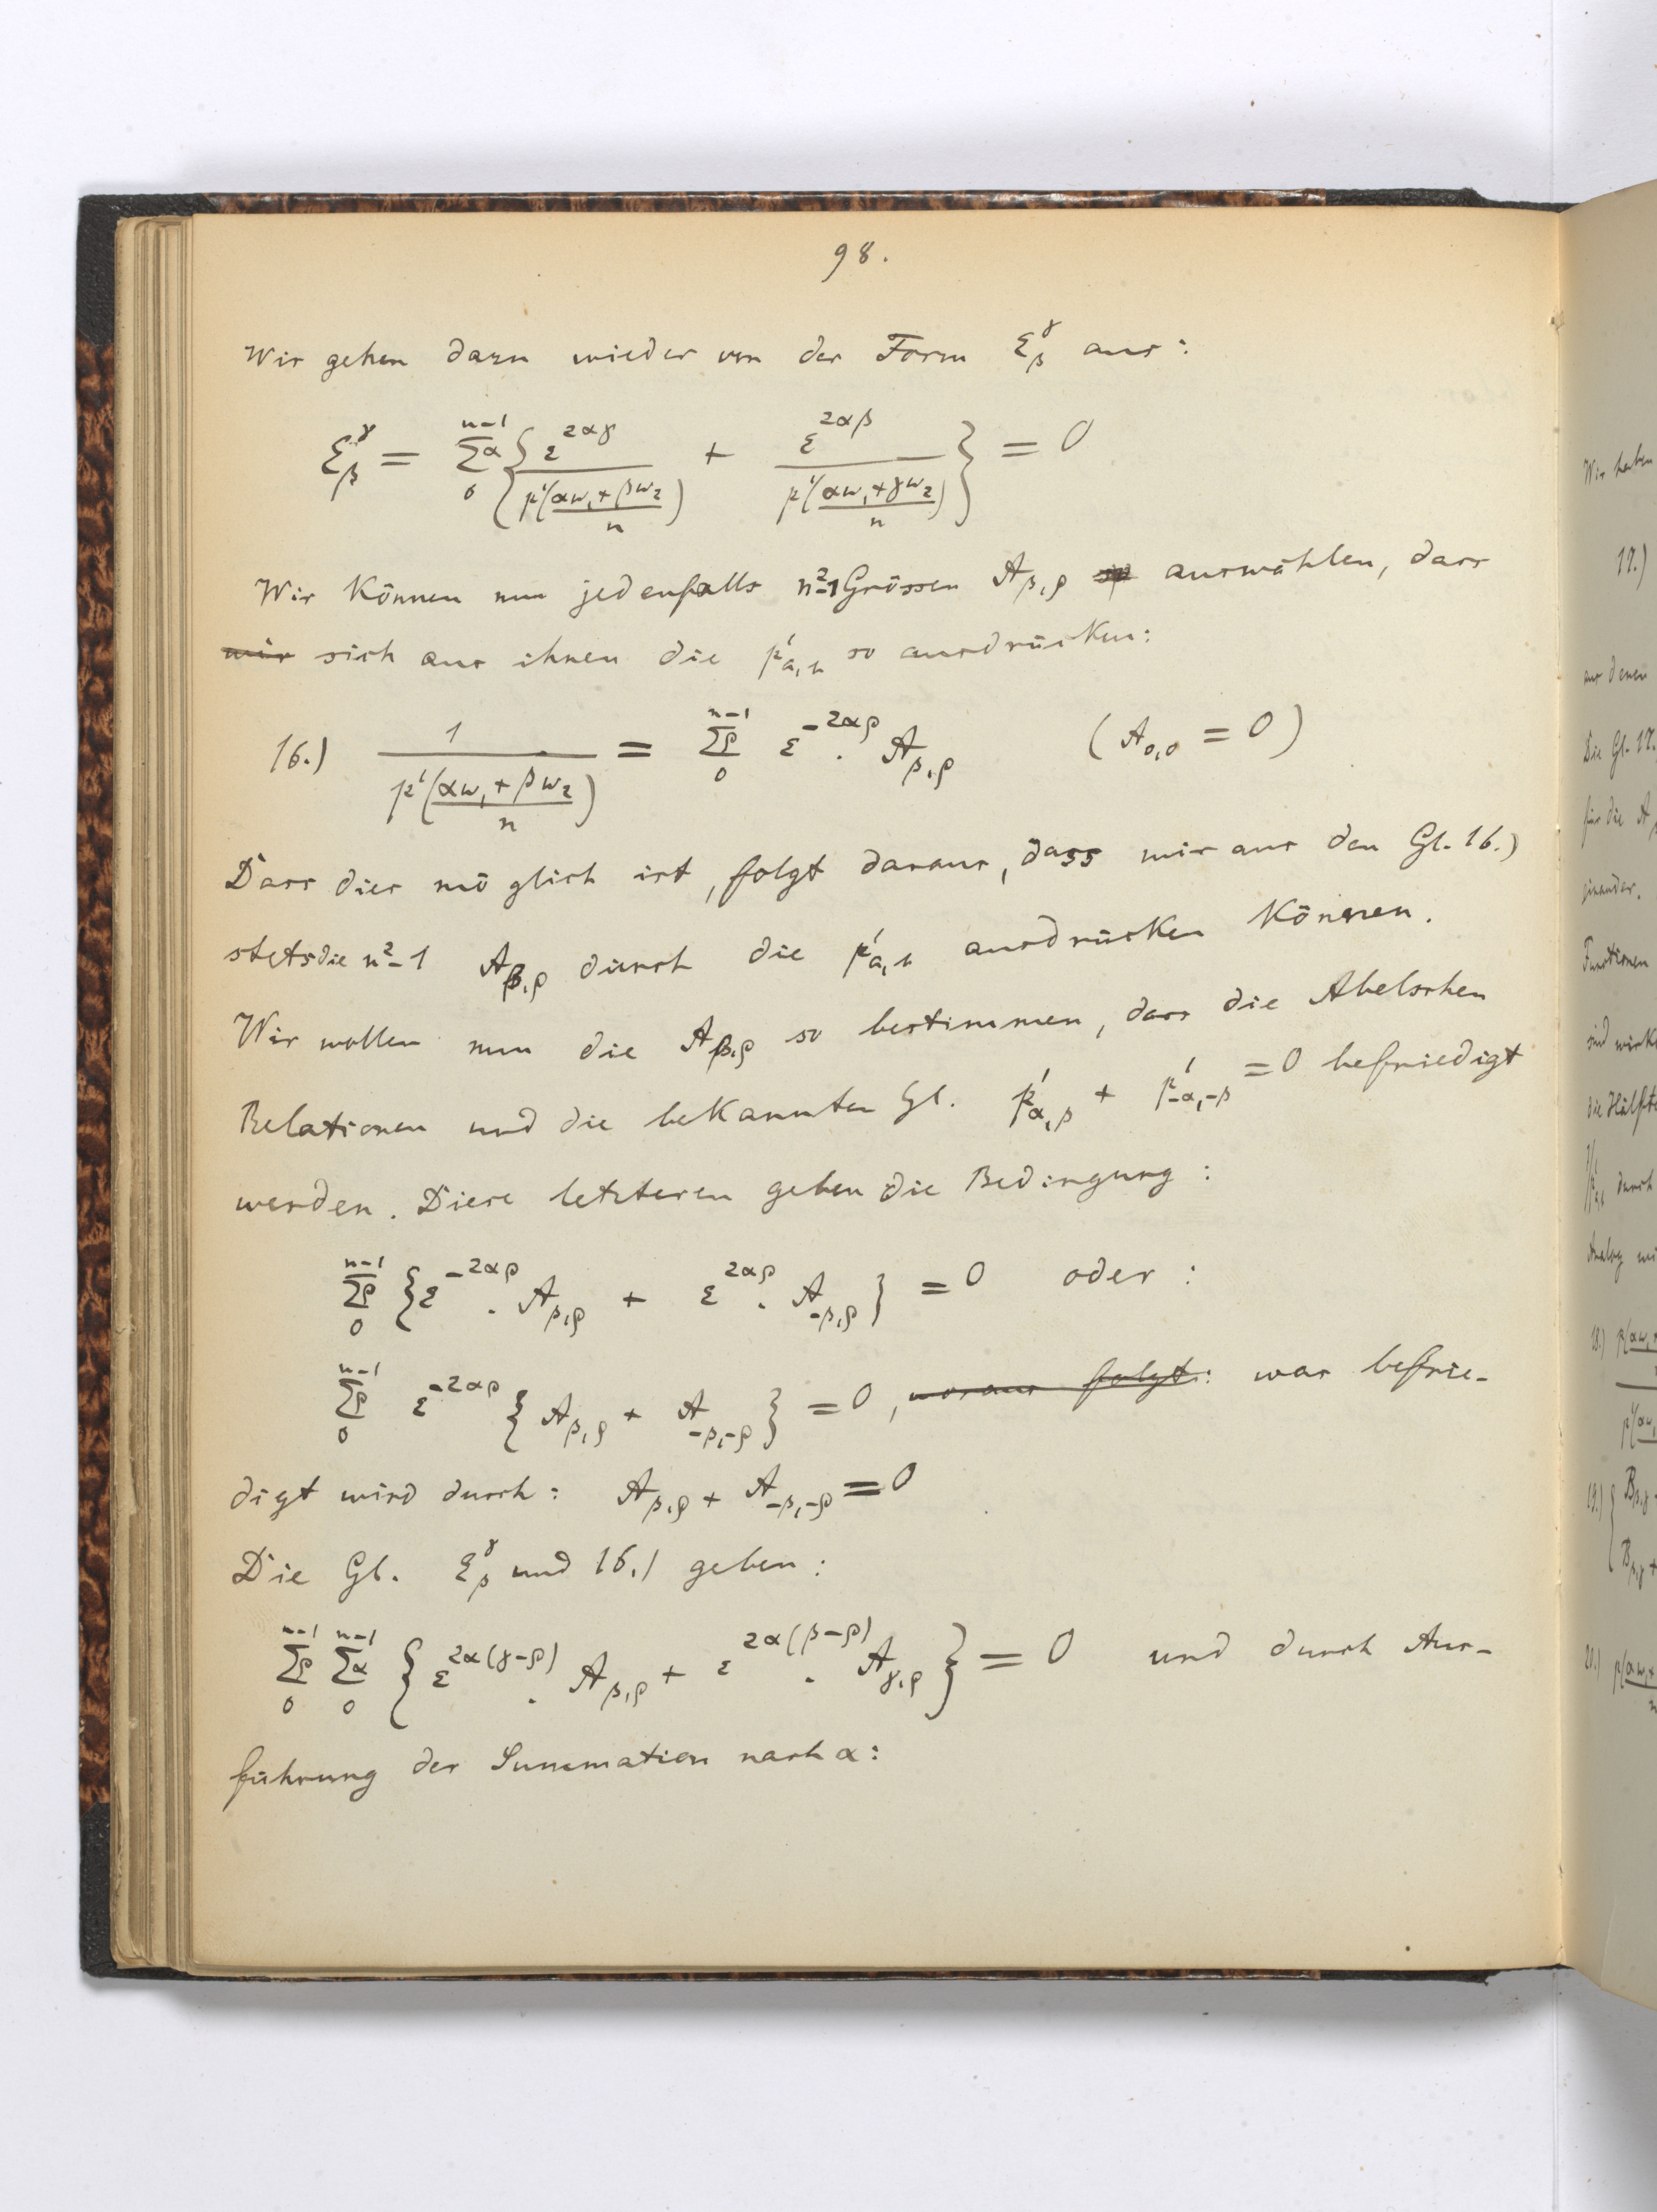 98.
Wir gehen dazu wieder von der Form ℰ_β^γ aus:
ℰ_β^γ = Σα_0^{n-1} { ε^{2αγ} / p'((αω₁+βω₂)/n) + ε^{2αβ} / p'((αω₁+γω₂)/n) } = 0
Wir können nun jedenfalls n²-1 Grössen A_{β,ρ} ~~so~~ auswählen, dass
~~wir~~ sich aus ihnen die p'_{a,b} so ausdrücken:
16.) 1 / p'((αω₁+βω₂)/n) = Σρ_0^{n-1} ε^{-2αρ} . A_{β,ρ} (A_{0,0} = 0)
Dass dies möglich ist, folgt daraus, dass wir aus den Gl. 16.)
stets die n²-1 A_{β,ρ} durch die p'_{a,b} ausdrücken können.
Wir wollen nun die A_{β,ρ} so bestimmen, dass die Abelschen
Relationen und die bekannten Gl. p'_{α,β} + p'_{-α,-β} = 0 befriedigt
werden. Diese letzteren geben die Bedingung:
Σρ_0^{n-1} { ε^{-2αρ} . A_{β,ρ} + ε^{2αρ} . A_{-β,ρ} } = 0 oder:
Σρ_0^{n-1} ε^{-2αρ} { A_{β,ρ} + A_{-β,-ρ} } = 0, ~~woraus folgt:~~ was befrie-
digt wird durch: A_{β,ρ} + A_{-β,-ρ} = 0
Die Gl. ℰ_β^γ und 16.) geben:
Σρ_0^{n-1} Σα_0^{n-1} { ε^{2α(γ-ρ)} . A_{β,ρ} + ε^{2α(β-ρ)} . A_{γ,ρ} } = 0 und durch Aus-
führung der Summation nach α:
Wir haben
17.)
aus denen
Die Gl. 17.
für die A
einander.
Functionen
sind
die Hälfte
durch
Analog
18.)
19.)
20.)